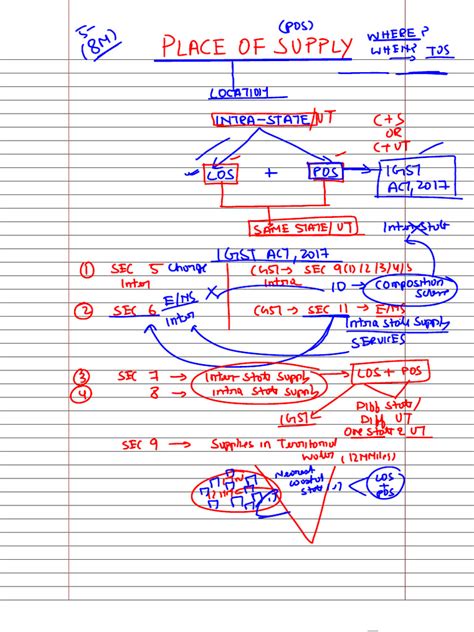 5-
(8M)
(POS)
PLACE OF SUPPLY
WHERE?
WHEN? TOS
LOCATION
INTRA-STATE/UT
C+S
OR
C+UT
LOS + POS
IGST
ACT, 2017
SAME STATE/UT
Inter State
IGST ACT, 2017
① SEC 5 Charge
Inter
CGST → SEC 9(1)/2/3/4/5
Intra
10 → Composition
Scheme
② SEC 6 E/NS
Inter
CGST → SEC 11 → E/NS
Intra State Supply
SERVICES
③ SEC 7 → Inter State Supply
LOS + POS
④ 8 → Intra State Supply
IGST
Diff State/
Diff UT
One State & UT
SEC 9 → Supplies in Territorial
Water (12 NMiles)
Nearest
coastal
state
LOS
+
POS